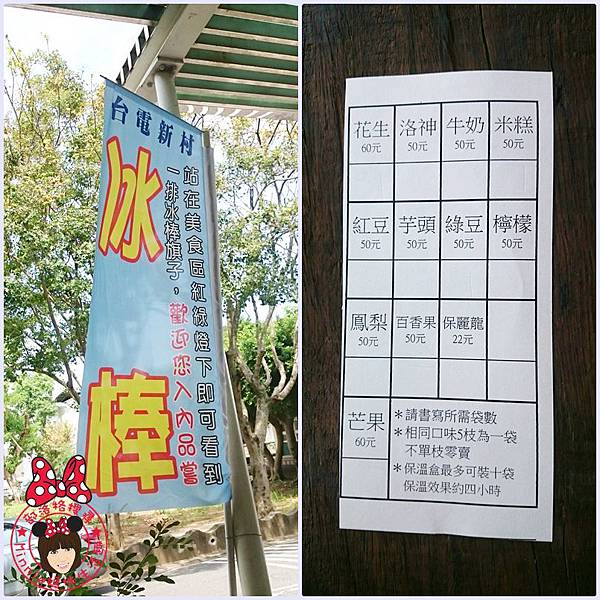 台電新村
冰棒
站在美食區紅綠燈下即可看到
一排冰棒旗子，歡迎您入內品嘗
花生 洛神 牛奶 米糕
60元 50元 50元 50元
紅豆 芋頭 綠豆 檸檬
50元 50元 50元 50元
鳳梨 百香果 保麗龍
50元 50元 22元
芒果
60元
＊請書寫所需袋數
＊相同口味5枝為一袋
不單枝零賣
＊保溫盒最多可裝十袋
保溫效果約四小時